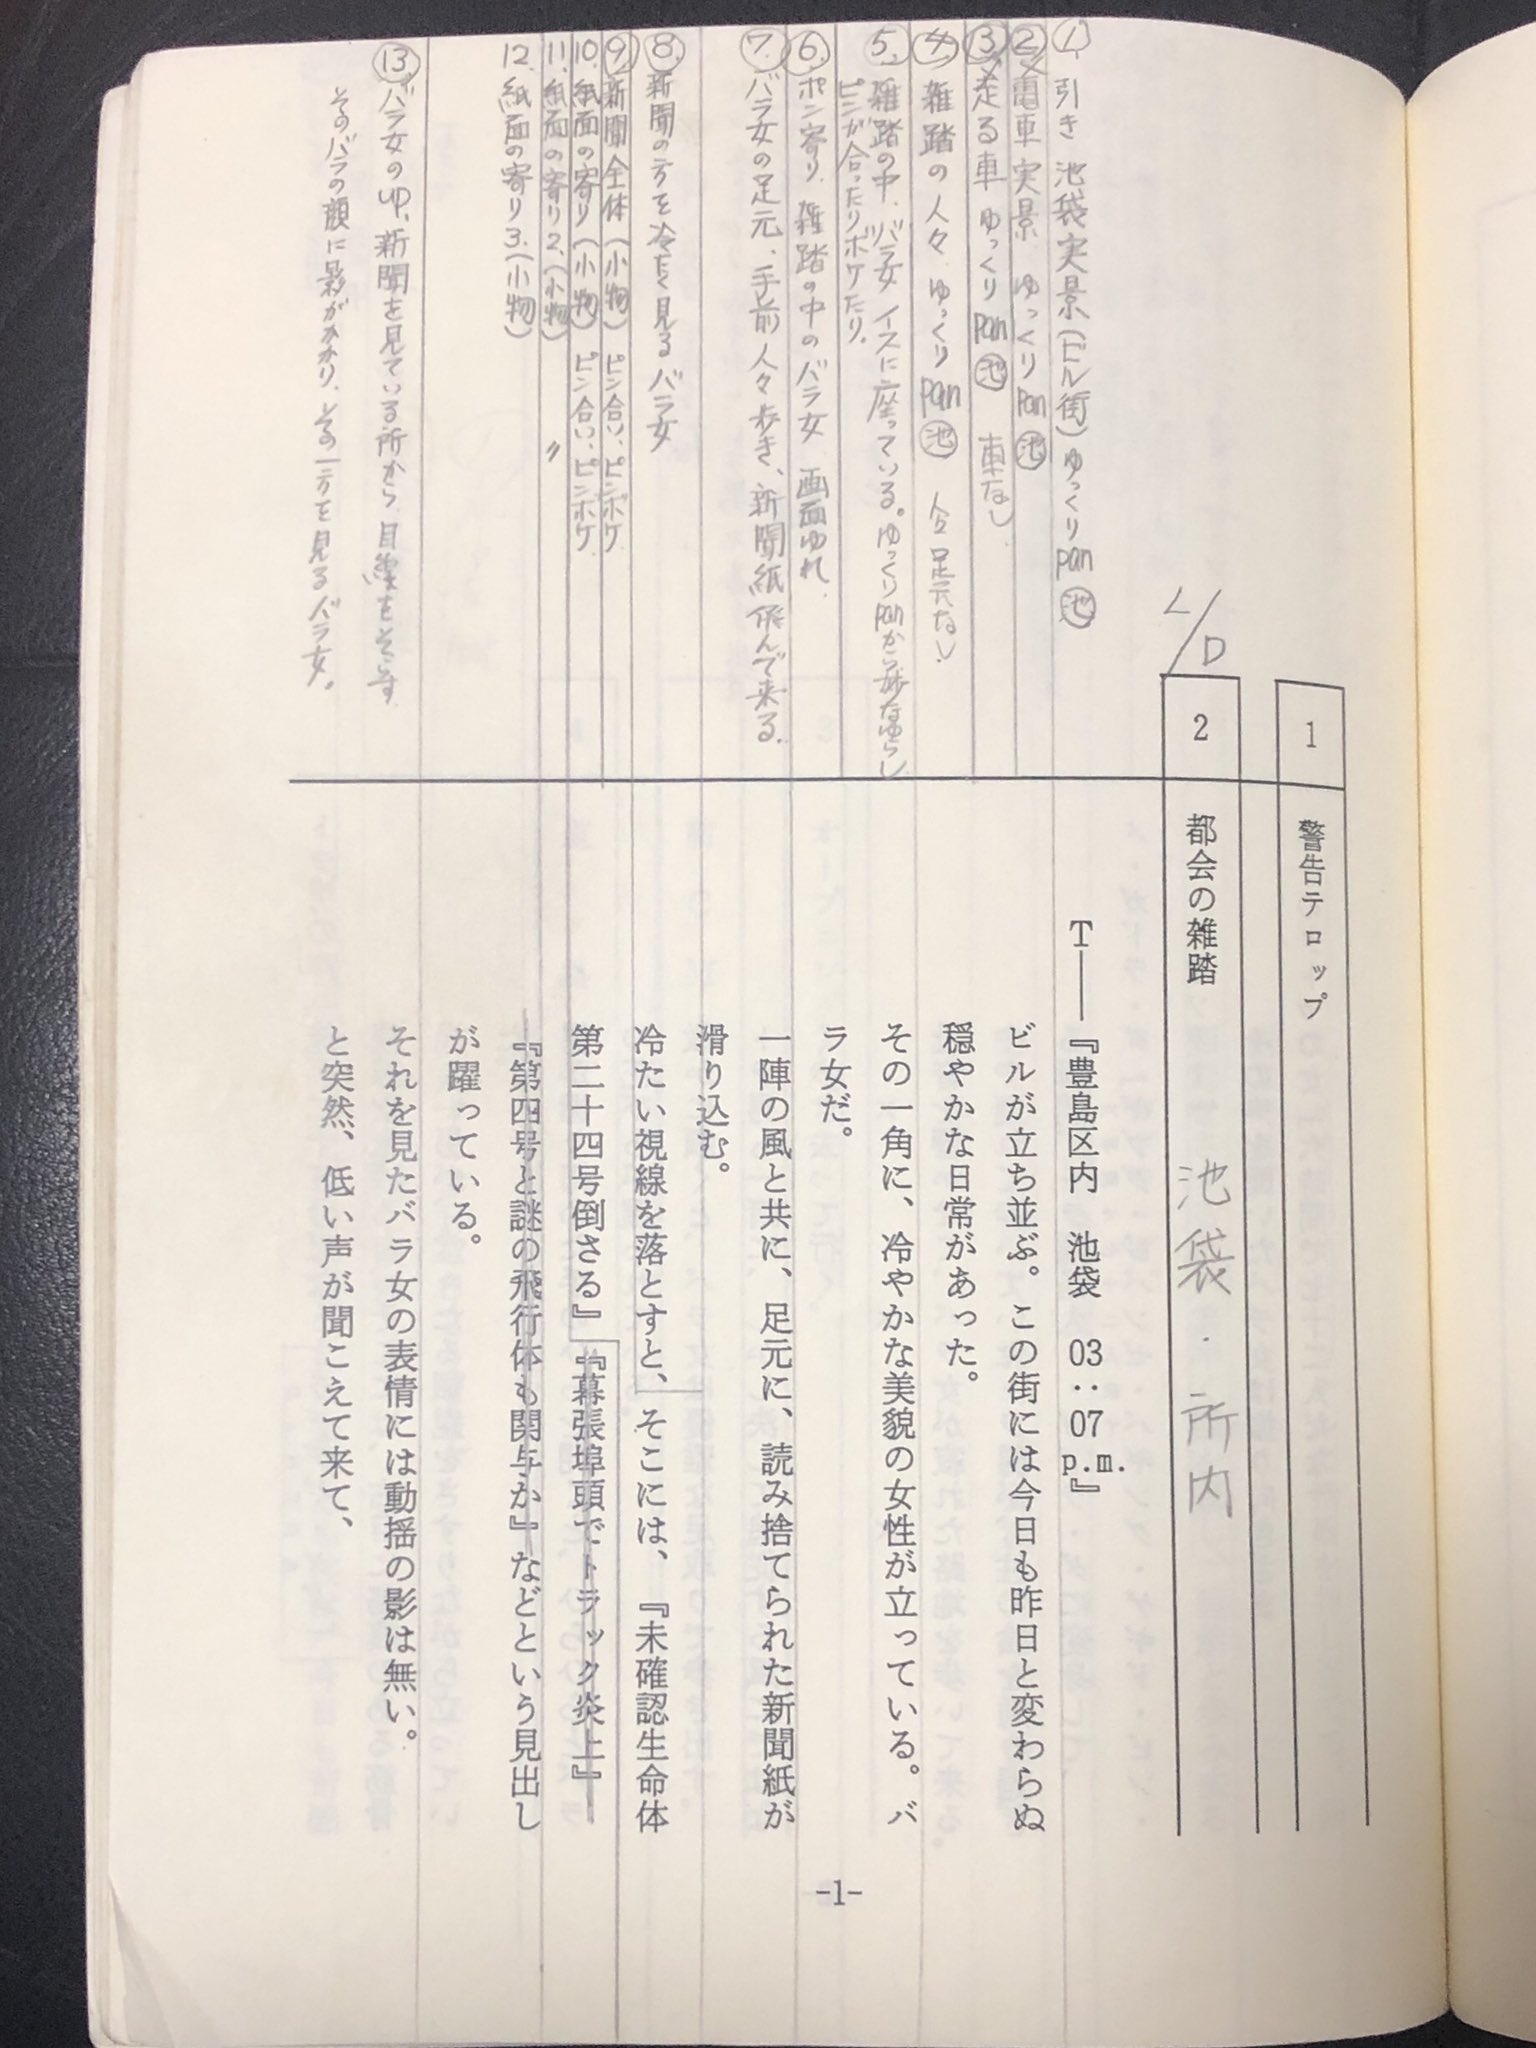 1
警告テロップ
L/D
2
都会の雑踏　池袋・所内
T――『豊島区内　池袋　03:07 p.m.』
ビルが立ち並ぶ。この街には今日も昨日と変わらぬ
穏やかな日常があった。
その一角に、冷やかな美貌の女性が立っている。バ
ラ女だ。
一陣の風と共に、足元に、読み捨てられた新聞紙が
滑り込む。
冷たい視線を落とすと、そこには、『未確認生命体
第二十四号倒さる』『幕張埠頭でトラック炎上』
『第四号と謎の飛行体も関与か』などという見出し
が躍っている。
それを見たバラ女の表情には動揺の影は無い。
と突然、低い声が聞こえて来て、
① 引き 池袋実景(ビル街)ゆっくりpan ㊉池
② 電車 実景 ゆっくりpan 池
③ 走る車 ゆっくりpan 池 車なし
④ 雑踏の人々 ゆっくりpan 池 足元なし
⑤ 雑踏の中、バラ女 イスに座っている。ゆっくりpanから ゆらし
ピンが合ったりボケたり。
⑥ ポン寄り、雑踏の中のバラ女 画面ゆれ
⑦ バラ女の足元、手前人々歩き、新聞紙飛んで来る。
⑧ 新聞の方を冷たく見るバラ女
⑨ 新聞全体(小物) ピン合い、ピンボケ
10. 紙面の寄り(小物) ピン合い、ピンボケ
11. 紙面の寄り2、(小物) 〃
12. 紙面の寄り3、(小物)
⑬ バラ女のup、新聞を見ている所から目線をそらす
そのバラの顔に影がかかり、その方を見るバラ女。
-1-